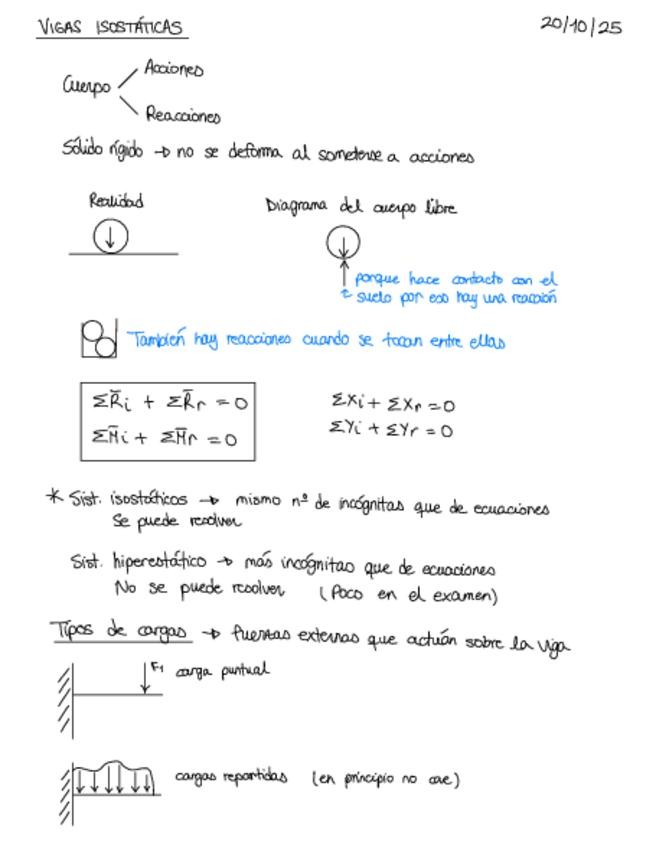 VIGAS ISOSTÁTICAS
20/10/25
Cuerpo
Acciones
Reacciones
Sólido rígido → no se deforma al someterse a acciones
Realidad
Diagrama del cuerpo libre
porque hace contacto con el
suelo por eso hay una reacción
También hay reacciones cuando se tocan entre ellas
ΣR̄i + ΣR̄r = 0
ΣM̄i + ΣM̄r = 0
ΣXi + ΣXr = 0
ΣYi + ΣYr = 0
* Sist. isostáticos → mismo nº de incógnitas que de ecuaciones
Se puede resolver
Sist. hiperestático → más incógnitas que de ecuaciones
No se puede resolver (Poco en el examen)
Tipos de cargas → fuerzas externas que actúan sobre la viga
F1 carga puntual
cargas repartidas (en principio no cae)